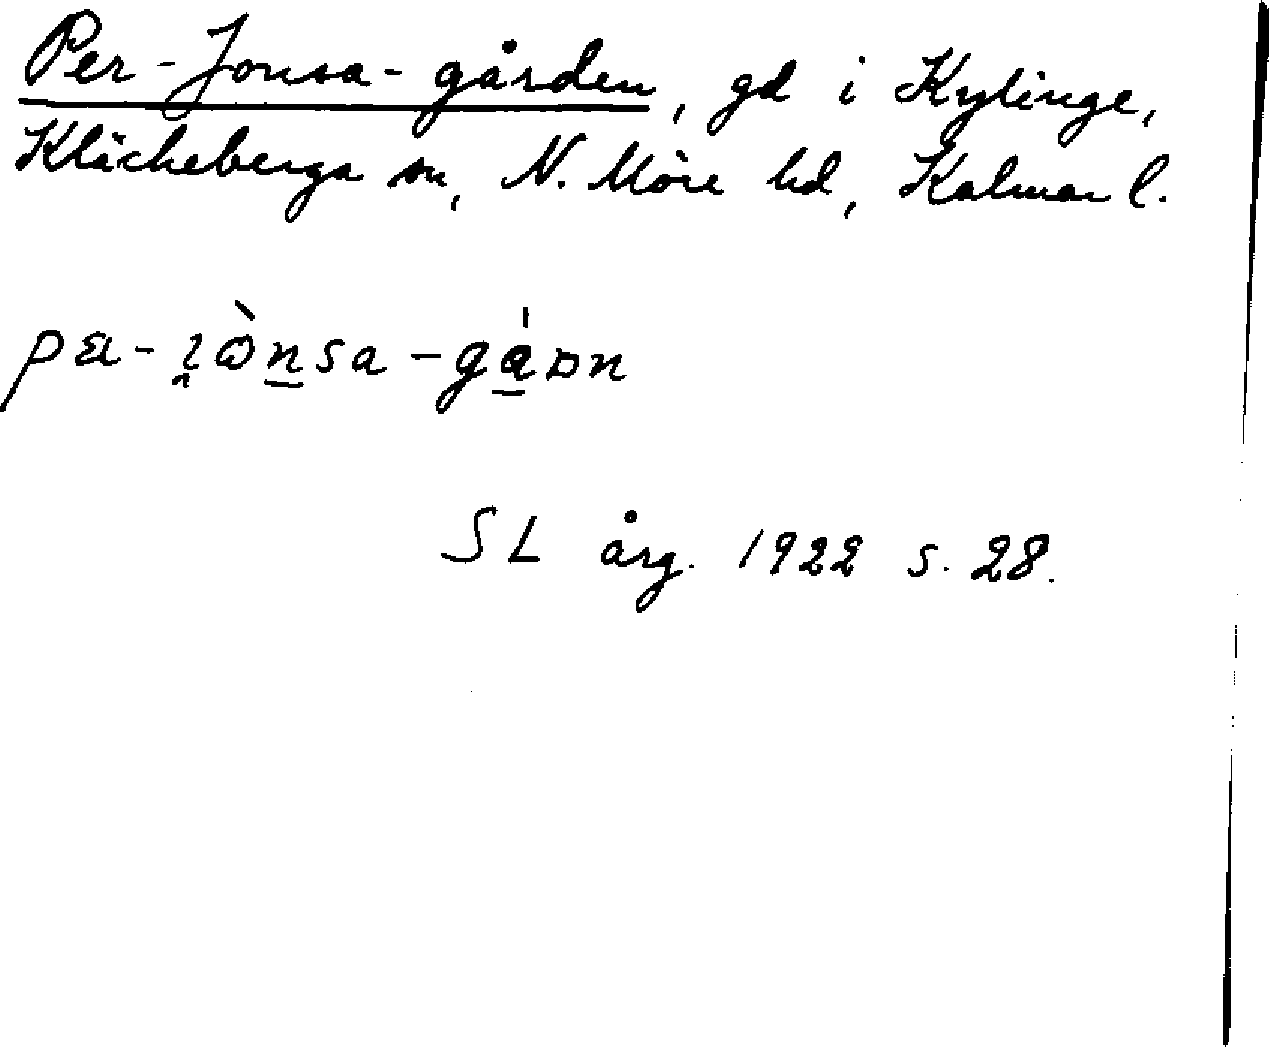 Per-Jonsa-gården, gd i Kylinge,
Kläckeberga sn, N. Möre hd, Kalmar l.
SL årg. 1922 s. 28.